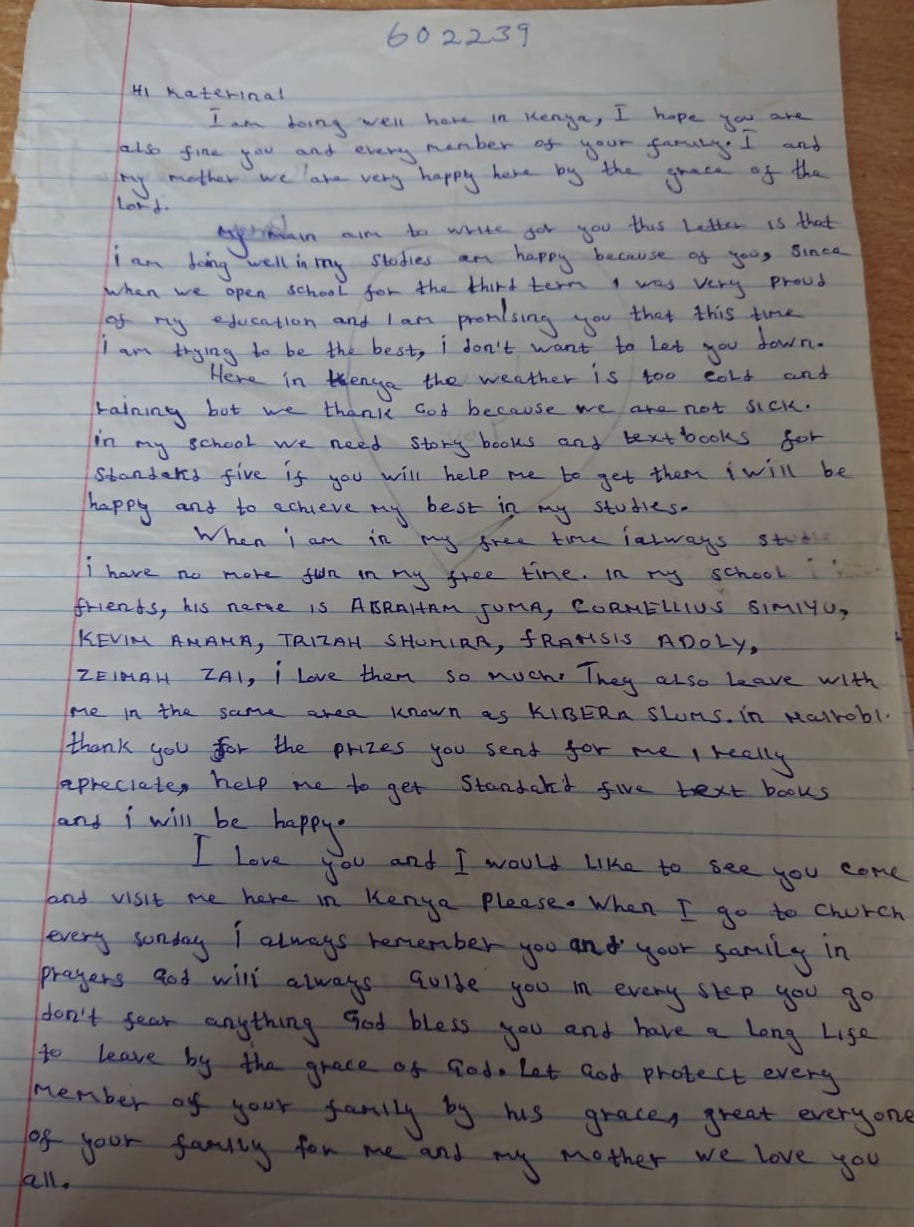 602239
HI Katerina!
I am doing well here in Kenya, I hope you are
also fine you and every member of your family. I and
my mother we are very happy here by the grace of the
Lord.
My main aim to write for you this letter is that
i am doing well in my studies am happy because of you, since
when we open school for the third term I was very proud
of my education and I am promising you that this time
i am trying to be the best, i don't want to let you down.
Here in Kenya the weather is too cold and
raining but we thank God because we are not sick.
in my school we need story books and textbooks for
standard five if you will help me to get them i will be
happy and to achieve my best in my studies.
When i am in my free time i always
i have no more fun in my free time. in my school
friends, his name is ABRAHAM JUMA, CORNELLIUS SIMIYU,
KEVIN AMAMA, TRIZAH SHUMIRA, FRANSIS ADOLY,
ZEINAH ZAI, i love them so much. They also leave with
me in the same area known as KIBERA SLUMS. in Nairobi.
thank you for the prizes you send for me i really
apreciate, help me to get standard five text books
and i will be happy.
I love you and I would like to see you come
and visit me here in Kenya please. When I go to church
every sunday i always remember you and your family in
prayers God will always Guide you in every step you go
don't fear anything God bless you and have a long life
to leave by the grace of God. Let God protect every
member of your family by his grace, great everyone
of your family for me and my mother we love you
all.